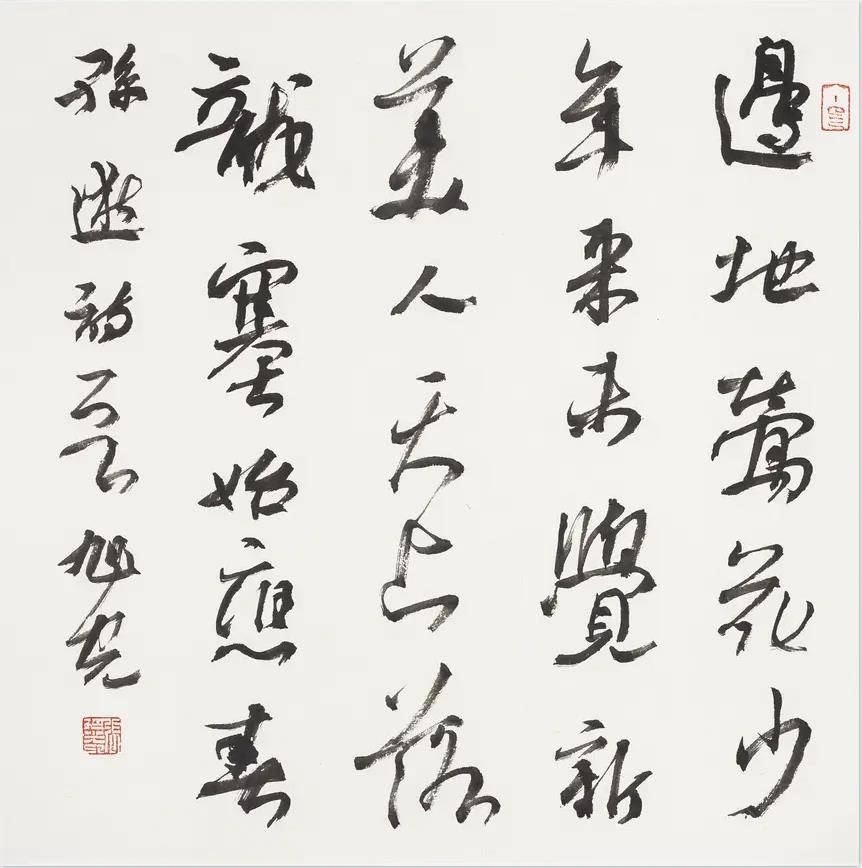 邊地鶯花少
年來未覺新
美人天上落
龍塞始應春
孫逖詩一首 旭光